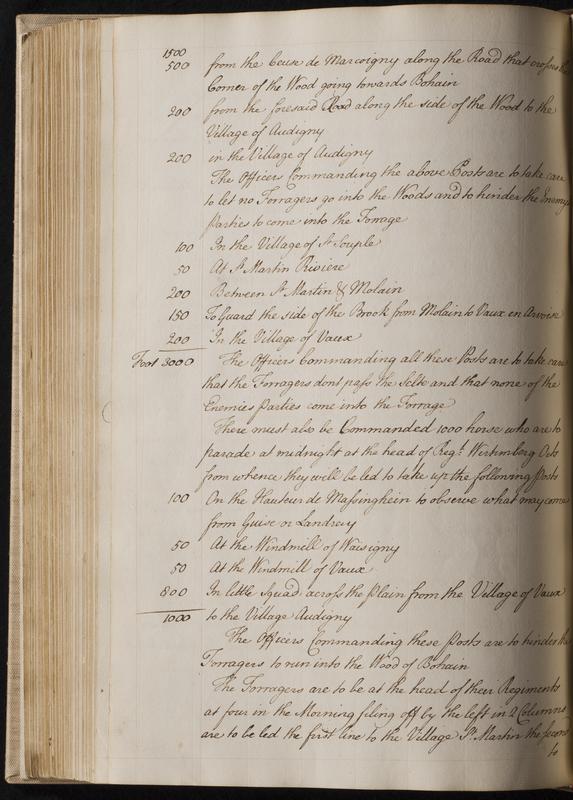 1500
500 from the Ceuse de Marcoigny along the Road that crosses the
Corner of the Wood going towards Bohain
200 from the foresaid Rood along the side of the Wood to the
Village of Audigny
200 in the Village of Audigny
The Officers Commanding the above Posts are to take care
to let no Forragers go into the Woods and to hinder the Enemys
Parties to come into the Forrage
100 In the Village of St Souple
50 At St Martin Riviere
200 Between St Martin & Molain
150 To Guard the side of the Brook from Molain to Vaux en Arroise
200 In the Village of Vaux
Foot 3000 The Officers Commanding all these Posts are to take care
that the Forragers dont pass the Selle and that none of the
Enemies Parties come into the Forrage
There must also be Commanded 1000 horse who are to
parade at midnight at the head of Regt. Wirtimberg Oels
from whence they will be led to take up the following Posts
100 On the Hauteur de Massinghein to observe what may come
from Guise or Landrecy
50 At the Windmill of Waisigny
50 At the Windmill of Vaux
800 In little Squad across the plain from the Village of Vaux
1000 to the Village Audigny
The Officers Commanding these Posts are to hinder the
Forragers to run into the Wood of Bohain
The Forragers are to be at the head of their Regiments
at four in the Morning filing off by the left in 2 Columns
are to be led the first line to the Village St. Martin the second
to